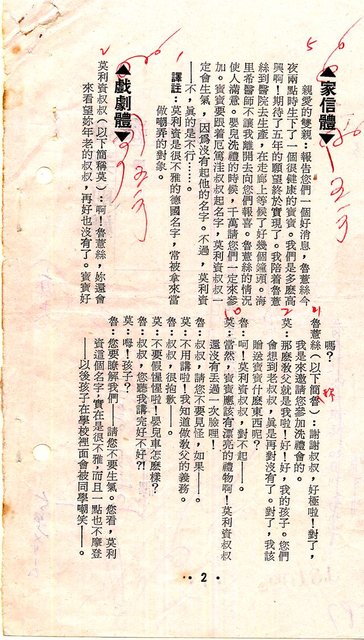 ▲家信體▼
親愛的雙親：報告您們一個好消息，魯薏絲今
夜兩點時生下了一個很健康的寶寶。我們是多麼高
興啊！期待了五年的願望終於實現了。我陪着魯薏
絲到醫院去生產，在走廊上等候了好幾個鐘頭。海
里希醫師不讓我離開去向您們報喜。魯薏絲的情況
使人滿意。嬰兒洗禮的時候，千萬請您們一定來參
加。寶寶要跟着厄篤洼叔叔起名字，莫利資叔叔一
定會生氣，因爲沒有起他的名字。不過，莫利資
──不，眞的是不行……。
譯註：莫利資是很不雅的德國名字，常被拿來當
做嘲弄的對象。
▲戲劇體▼
莫利資叔叔（以下簡稱莫）：啊！魯薏絲，妳還會
來看望妳年老的叔叔，再好也沒有了。寶寶好
嗎？
魯薏絲（以下簡魯）：謝謝叔叔，好極啦！對了，
我是來邀請您參加洗禮會的。
莫：那麼教父就是我啦！好！好，我的孩子。您們
會想到老叔叔，眞是再對沒有了。對了，我該
贈送寶寶什麼東西呢？
魯：呵！莫利資叔叔，對不起──。
莫：當然，寶寶應該有漂亮的禮物啊！莫利資叔叔
還沒有丟過一次臉哩！
魯：叔叔，請您不要見怪，如果──。
莫：不用講啦！我知道做教父的義務。
魯：叔叔，很抱歉──。
莫：不要假惺惺啦！嬰兒車怎麼樣？
魯：叔叔，您聽我講完好不好？！
莫：嗨！孩子？
魯：您要瞭解我們──請您不要生氣。您看，莫利
資這個名字，實在是很不雅，而且一點也不摩登
──以後孩子在學校裡面會被同學嘲笑──。
·· 2 ··